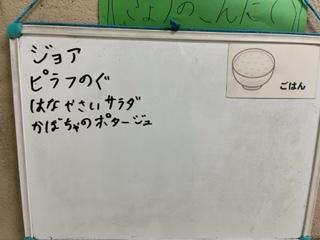 きょうのこんだて
ジョア
ピラフのぐ
はなやさいサラダ
かぼちゃのポタージュ
ごはん